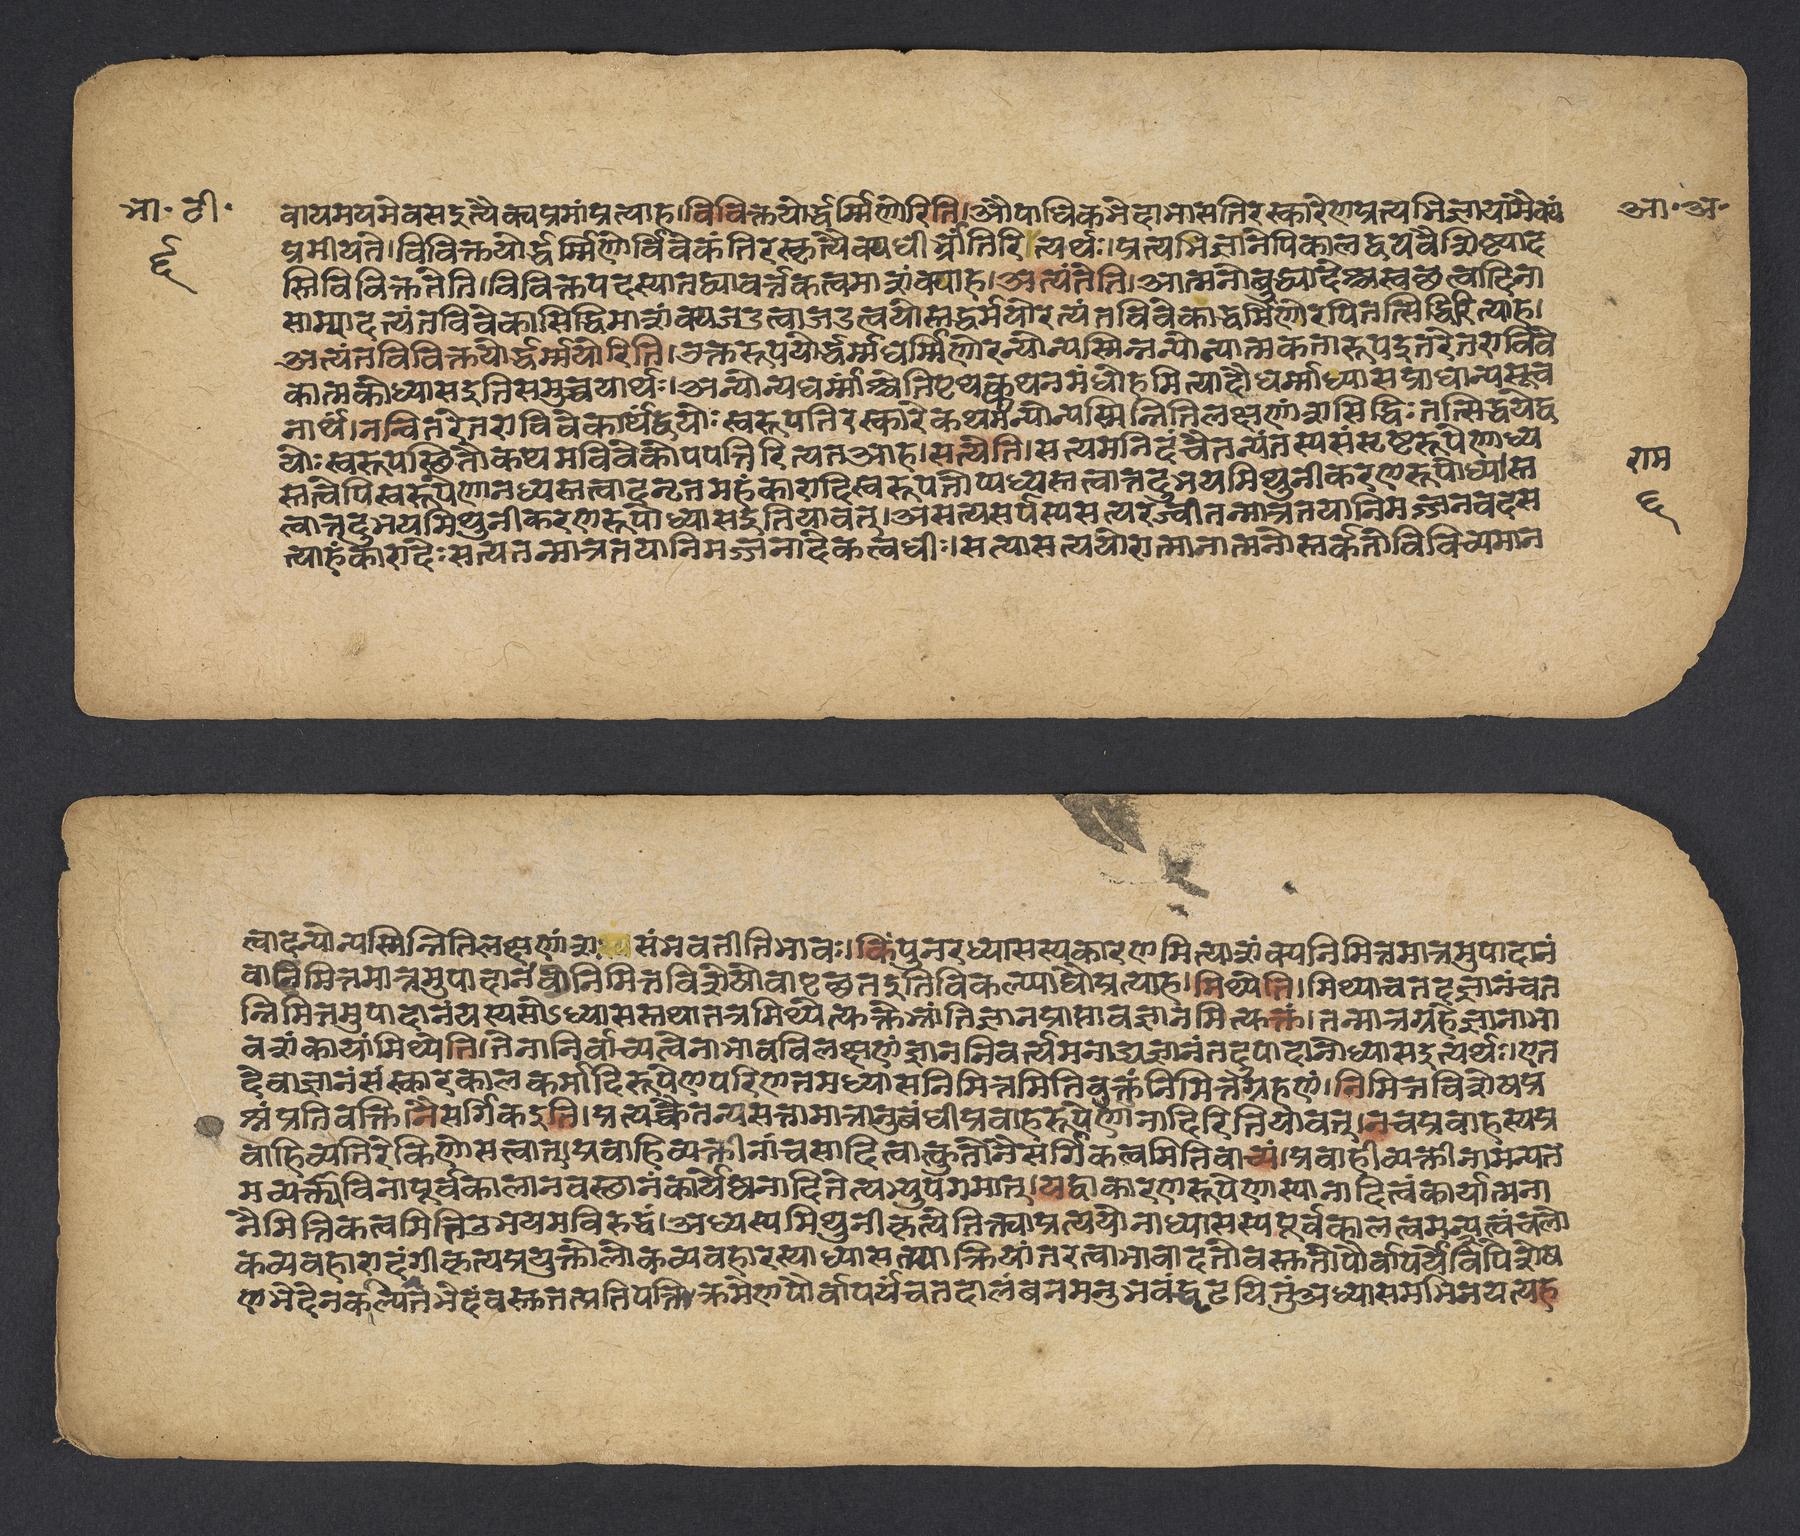 भा॰ टी॰
६
आ॰ अ॰
वायमयमेवसइत्यैक्यप्रमांप्रत्याह।विविक्तयोर्द्धर्म्मिणोरिति।औपाधिकभेदाभासतिरस्कारेणप्रत्यभिज्ञायामैक्यं
प्रमीयते।विविक्तयोर्द्धर्म्मिणोर्विवेकंतिरस्कृत्यैक्यधीर्भ्रांतिरित्यर्थः।प्रत्यभिज्ञानेपिकालद्वयवैशिष्ट्याद
स्तिविविक्ततेति।विविक्तपदस्यातद्व्यावर्त्तकत्वमाशंक्याह।अत्यंतेति।आत्मनोबुद्ध्यादेश्चस्वछत्वादिना
साम्यादत्यंतविवेकासिद्धिमाशंक्यजडत्वाजडत्वयोस्तद्धर्मयोरत्यंतविवेकाद्धर्मिणोरपितत्सिद्धिरित्याह।
अत्यंतविविक्तयोर्द्धर्म्मयोरिति।उक्तरूपयोर्द्धर्म्मधर्म्मिणोरन्योन्यस्मिन्नन्योन्यात्मकतारूपइतरेतराविवे
कात्मकोध्यासइतिसमुच्चयार्थः।अन्योन्यधर्म्मांश्चेतिपृथक्कथनमंधोहमित्यादौधर्म्माध्यासप्राधान्यसूच
नार्थं।नन्वितरेतराविवेकार्थंद्वयोःस्वरूपतिरस्कारेकथमन्योन्यस्मिन्नितिलक्षणांशसिद्धिःतत्सिद्धयेद्व
योःस्वरूपस्छितौकथमविवेकोपपत्तिरित्यतआह।सत्येति।सत्यमनिदंचैतन्यंतस्यसंसृष्टरूपेणाध्य
राम
स्तत्वेपिस्वरूपेणानध्यस्तत्वादनृतमहंकारादिस्वरूपतोप्यध्यस्तत्वात्तदुभयमिथुनीकरणरूपोध्यास्त
६
त्वात्तदुभयमिथुनीकरणरूपोध्यासइतियावत्।असत्यसर्पस्यसत्यरज्वीतन्मात्रतयानिमज्जनवदस
त्याहंकारादेःसत्यतन्मात्रतयानिमज्जनादेकत्वधीः।सत्यासत्ययोरात्मानात्मनोस्तर्कतोविविच्यमान
त्वादन्योन्यस्मिन्नितिलक्षणांशःसंभवतीतिभावः।किंपुनरध्यासस्यकारणमित्याशंक्यनिमित्तमात्रमुपादानं
वानिमित्तमात्रमुपादानंवानिमित्तविशेषोवापृछ्यतइतिविकल्प्याद्यौप्रत्याह।मिथ्येति।मिथ्याचतदज्ञानंचत
न्निमित्तमुपादानंयस्यसोऽध्यासस्तथातत्रमिथ्येत्युक्तेभ्रांतिज्ञानप्राप्तावज्ञानमित्युक्तं।तन्मात्रग्रहेज्ञानाभा
वशंकायांमिथ्येति।तेनानिर्वाच्यत्वेनाभावविलक्षणंज्ञाननिवर्त्यमनाद्यज्ञानंतदुपादानोध्यासइत्यर्थः।एत
देवाज्ञानंसंस्कारकालकर्मादिरूपेणपरिणतमध्यासनिमित्तमितिवक्तुंनिमित्तग्रहणं।निमित्तविशेषप्र
श्नंप्रतिवक्ति।नैसर्गिकइति।प्रत्यक्चैतन्यसत्तामात्रानुबंधीप्रवाहरूपेणानादिरितियावत्।नचप्रवाहस्यप्र
वाहिव्यतिरेकिणोसत्वात्।प्रवाहिव्यक्तीनांचसादित्वात्कुतोनैसर्गिकत्वमितिवाच्यं।प्रवाहीव्यक्तीनामन्यत
मव्यक्त्याविनापूर्वकालानवस्छानंकार्येष्वनादितेत्यभ्युपगमात्।यद्वाकारणरूपेणास्यानादित्वंकार्यात्मना
नैमित्तिकत्वमित्तिउभयमविरुद्धं।अध्यस्यमिथुनीकृत्येतित्क्त्वाप्रत्ययोनाध्यासस्यपूर्वकालत्वमन्यत्वंचलो
कव्यवहारादंगीकृत्यप्रयुक्तोलोकव्यवहारस्याध्यासतयाक्रियांतरत्वाभावादतोवस्तुतोपौर्वापर्येविपिशेष
णभेदेनकल्पितभेदंवस्तुतत्प्रतिपत्तिक्रमेणपौर्वापर्यंचतदालंबनमनुभवंद्रढयितुंअध्यासमभिनयत्यह